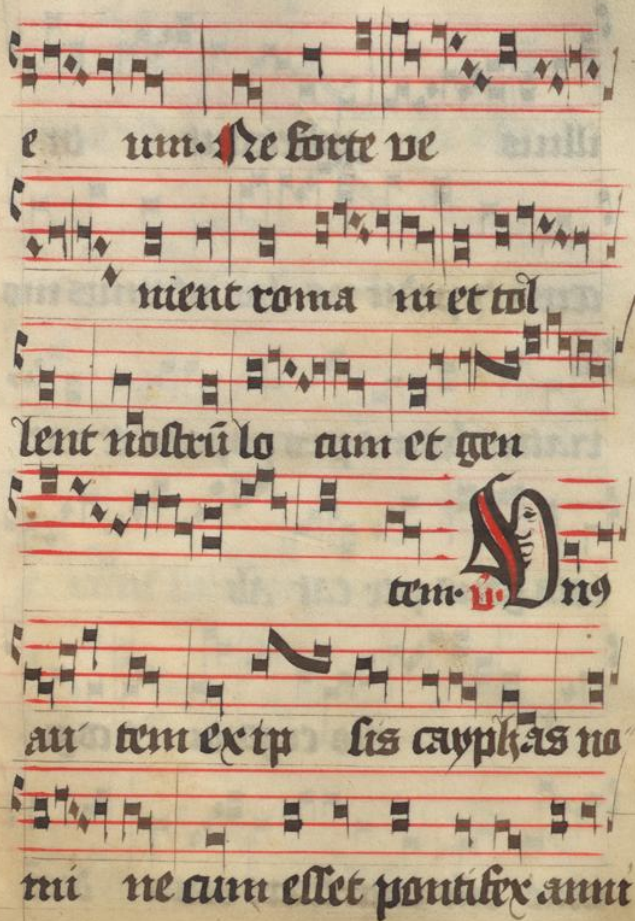 e um. Ne forte ve
nient roma ni et tol
lent nostrū lo cum et gen
tem. v̄. Unꝰ
au tem ex ip sis cayphas no
mi ne cum esset pontifex anni